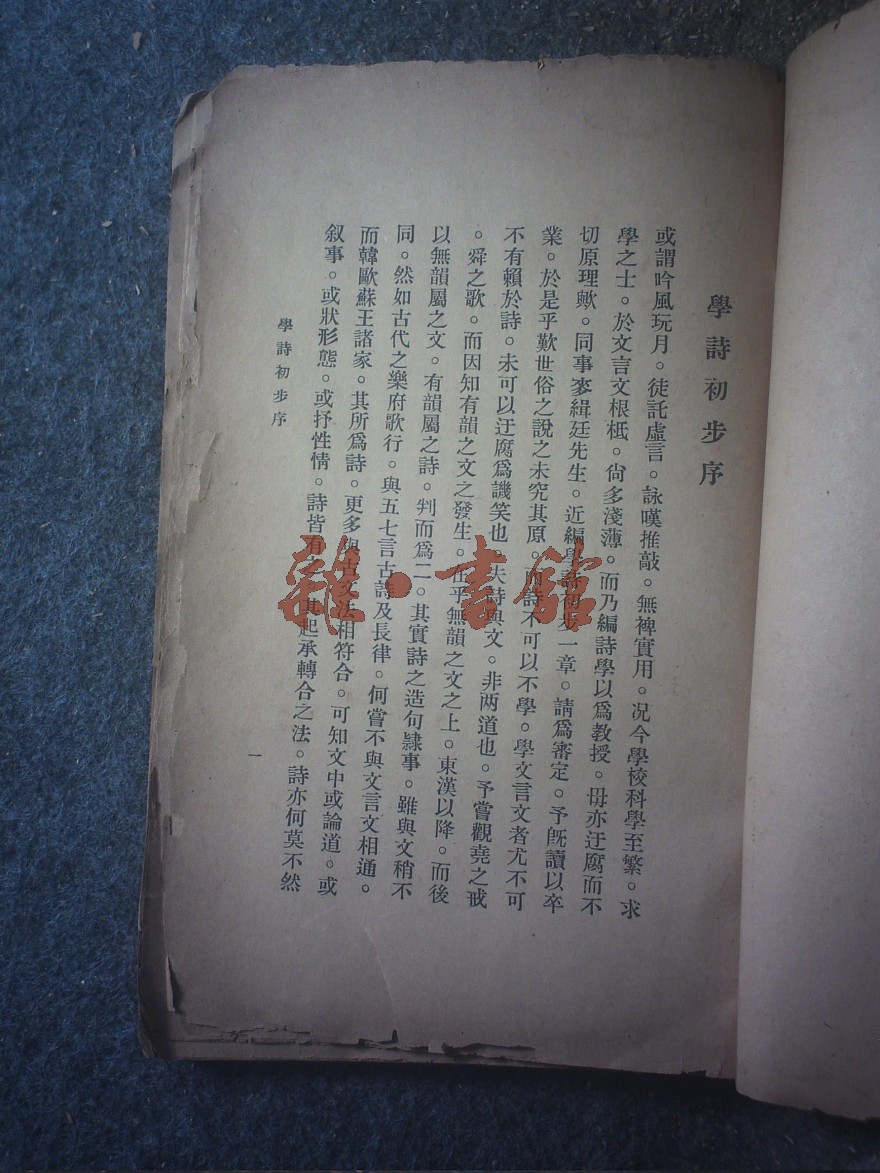 學詩初步序
或謂吟風玩月。徒託虛言。詠嘆推敲。無裨實用。况今學校科學至繁。求
學之士。於文言文根柢。尙多淺薄。而乃編詩學以爲敎授。毋亦迂腐而不
切原理歟。同事麥緝廷先生。近編學詩初步一章。請爲審定。予旣讀以卒
業。於是乎歎世俗之說之未究其原。而詩不可以不學。學文言文者尤不可
不有賴於詩。未可以迂腐爲譏笑也。夫詩與文。非两道也。予嘗觀堯之戒
。舜之歌。而因知有韻之文之發生。在乎無韻之文之上。東漢以降。而後
以無韻屬之文。有韻屬之詩。判而爲二。其實詩之造句隷事。雖與文稍不
同。然如古代之樂府歌行。與五七言古詩及長律。何嘗不與文言文相通。
而韓歐蘇王諸家。其所爲詩。更多與古文法相符合。可知文中或論道。或
叙事。或狀形態。或抒性情。詩皆有之。其起承轉合之法。詩亦何莫不然
學詩初步序
一
雜·書館